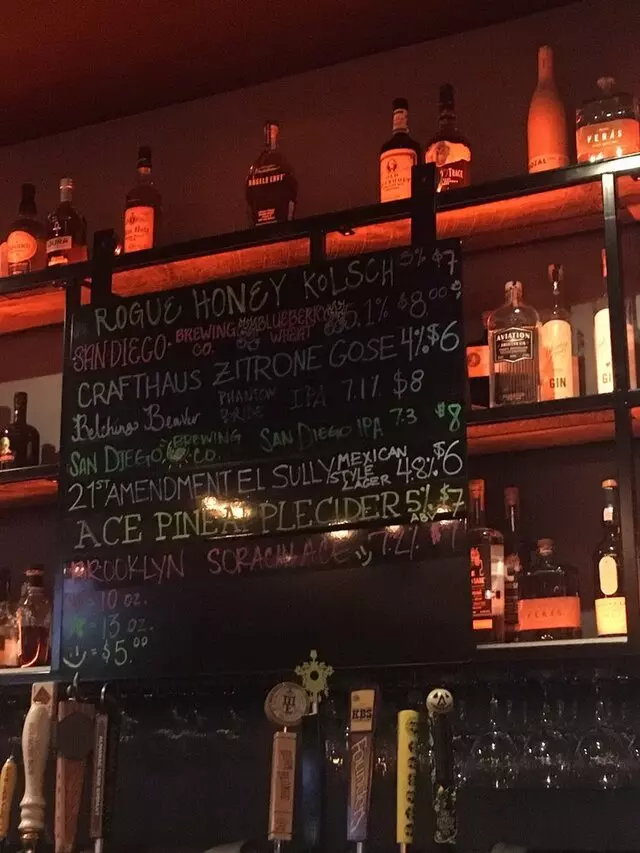 ROGUE HONEY KOLSCH 5% $7
SAN DIEGO BREWING CO. BLUEBERRY WHEAT 5.1% $8.00
CRAFTHAUS ZITRONE GOSE 4% $6
Belching Beaver PHANTOM BRIDE IPA 7.1% $8
SAN DIEGO BREWING CO. SAN DIEGO IPA 7.3 $8
21ST AMENDMENT EL SULLY MEXICAN STYLE LAGER 4.8% $6
ACE PINEAPPLE CIDER 5% ABV $7
BROOKLYN SORACHI ACE 7.2% $7
= 10 oz.
= 13 oz.
= $5.00
AVIATION
GIN
G
VERÁS
VERÁS
KBS
Founders